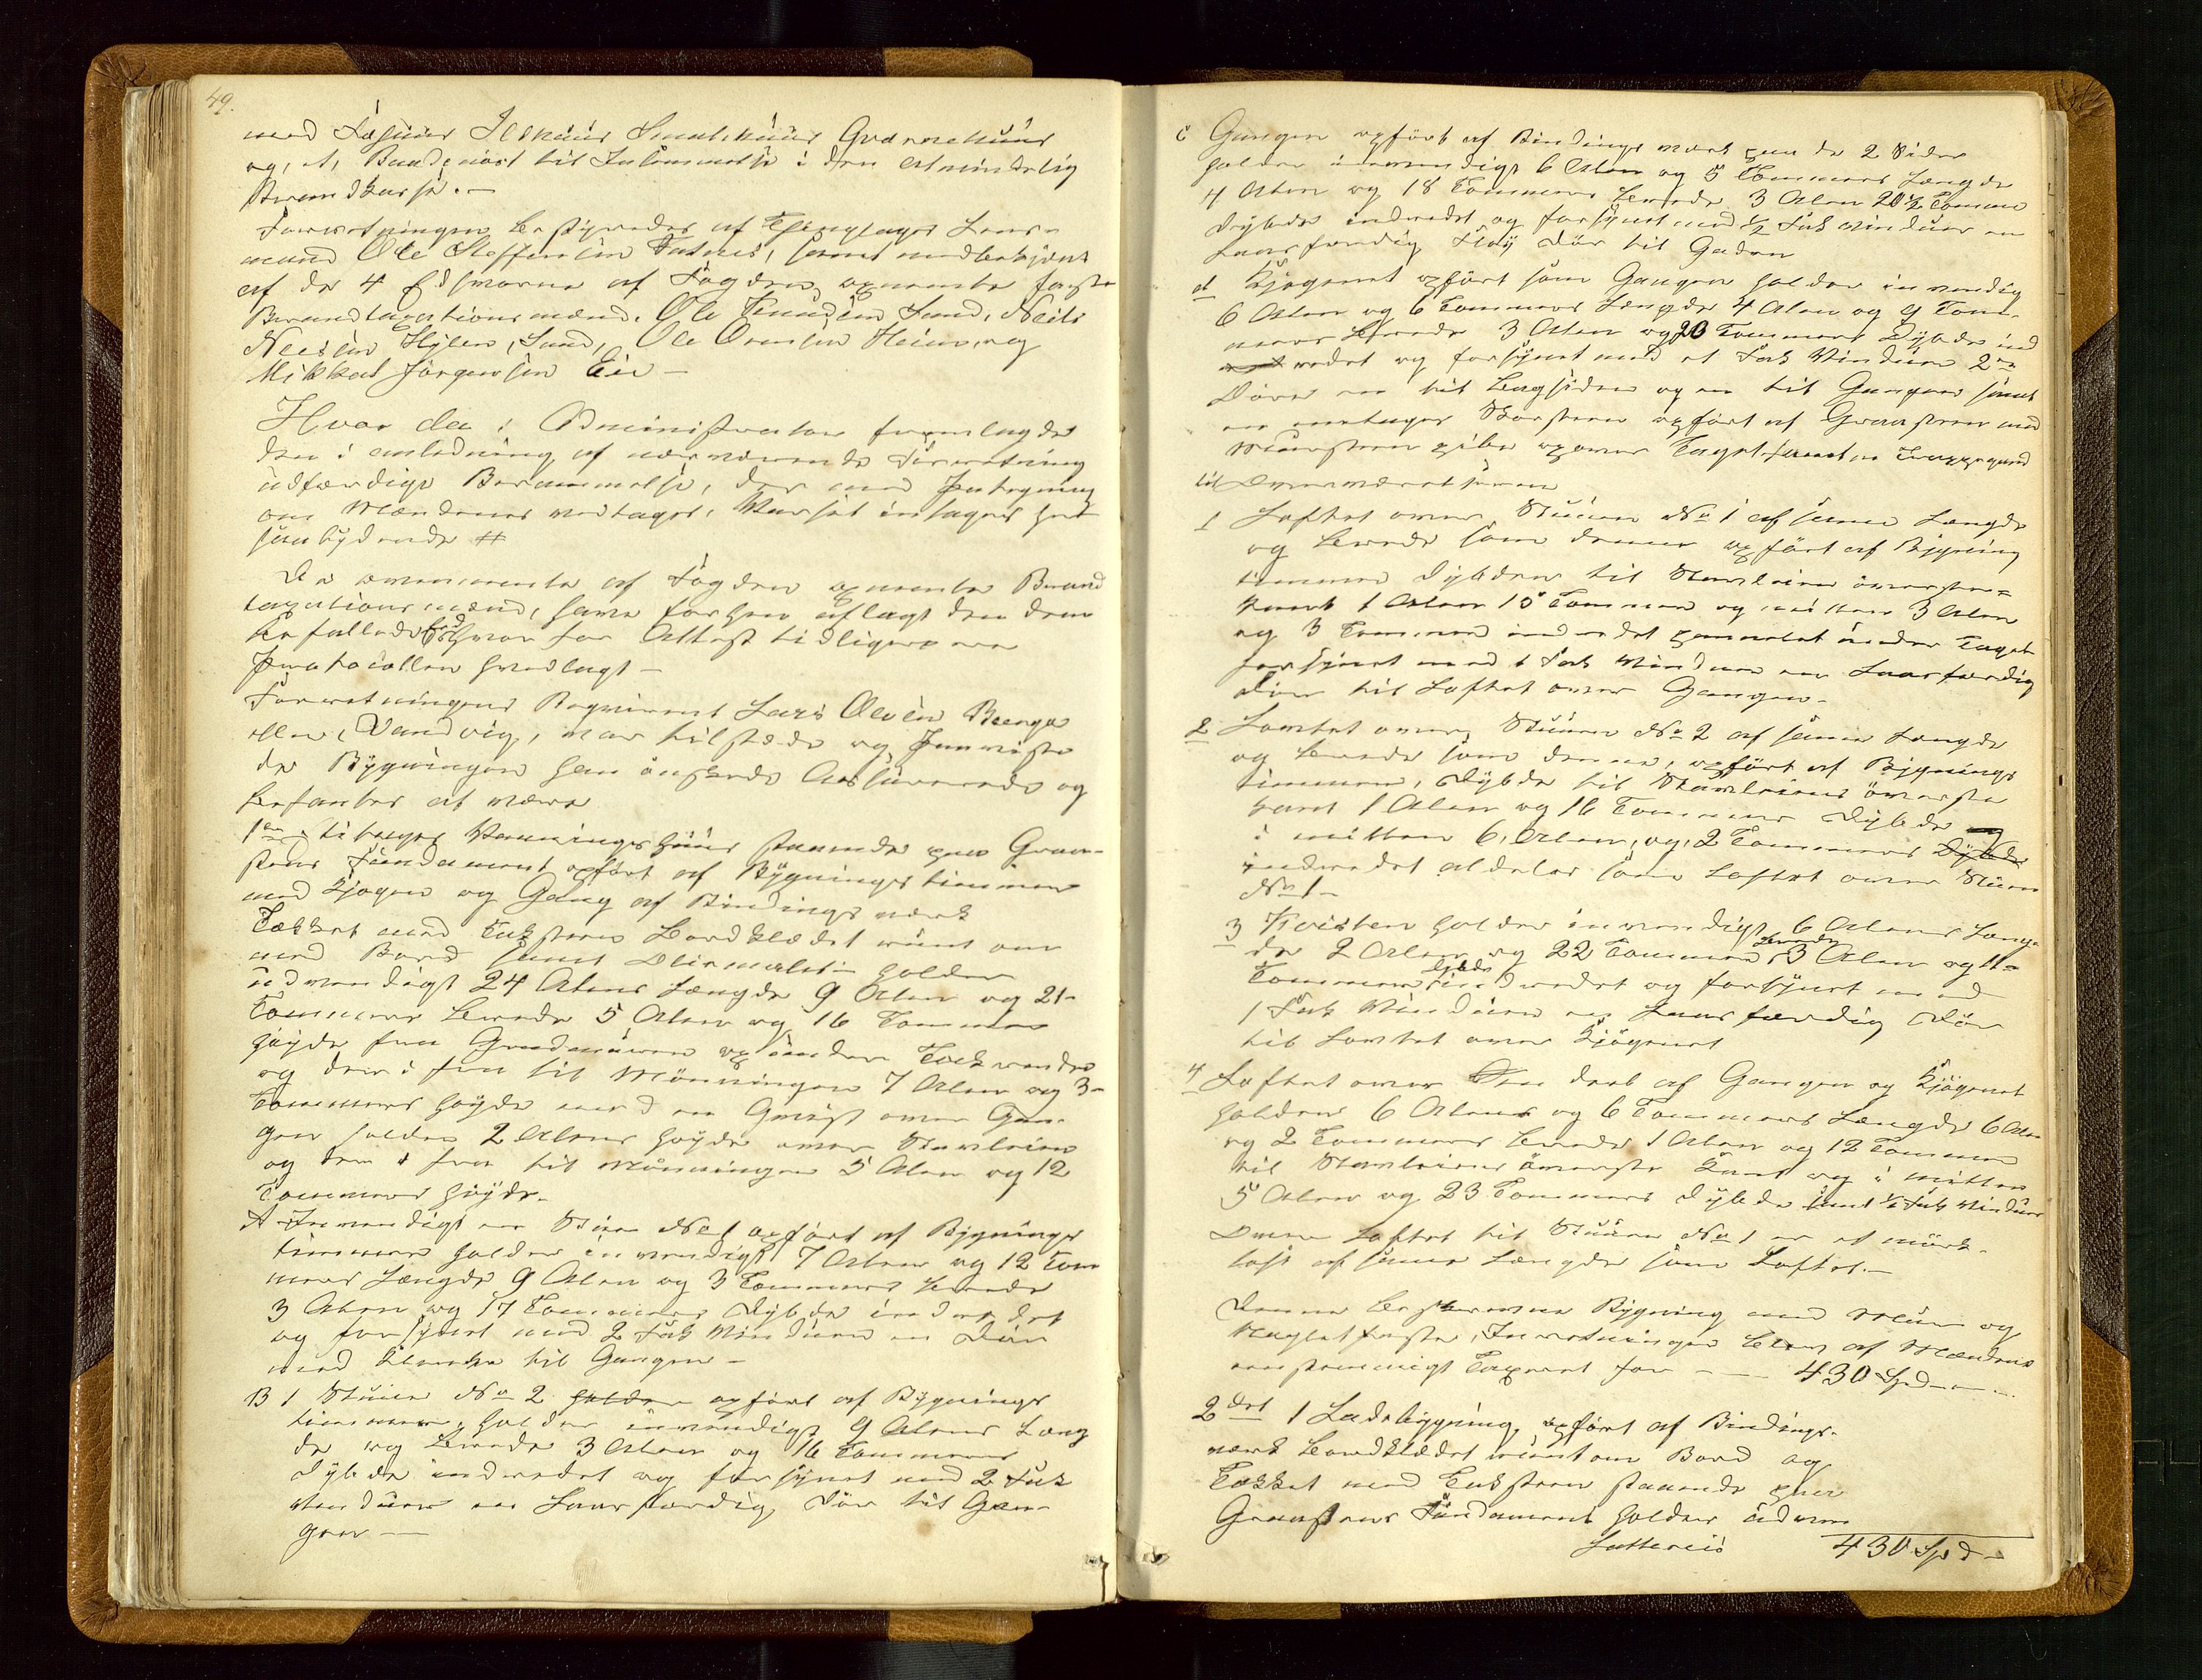 49.
med Fæhuus Ildhuus Smalehuus Qværnehuus
og, et, Baadnøst til Indlemmelse i den almindelig
Brandkasse. —
Forretningen bestyredes af Thinglaget Lens-
mand Ole Steffensen Fatnes, samt medbetjent
af de 4 Edsvorne af Fogden opnævnte faste
Brandtaxationsmænd. Ole Knudsen Sand, Neils
Neelsen Hylen, Sand, Ole Ormsen Heim, og
Mikkel Jørgensen Eie —
Hvor da: Administrator fremlagde
den i anledning af nærværende Forretning
udfærdige Berammelse, der med Paategning
om Mændenes vedtagne Varsel intages her
saalydende #
De ovennævnte af Fogden opnævnte Brand
taxationsmænd, have forhen aflagt den dem
befallede Eed hvorfor Attest tidligere er
Protocollen hvedlagt —
Forretningens Reqvirent Lars Olsen
Vandvig, var tilstede og Paaviste
de Bygninger han ønskede Assurerede og
befantes at være
1en 1 Etages Vaaningshuus staaende paa Graa-
steens Fundament opført af Bygningstimmer
med Kjøgen og Gang af Bindingsværk
Tækket med Taksteen Bordklædet rundt om
med Bord samt Oliemalet — holder
udvendigt 24 Alens Længde 9 Alen og 21-
Tommers Brede 5 Alen og 16 Tommers
høyde fra Grundmuren op under Tagrenden
og derifra til Mønningen 7 Alen og 3-
Tommers høyde med en Qvist over Gan-
gen holder 2 Alens høyde over Stavleien
og derifra til Mønningen 5 Alen og 12
Tommers høyde.
A Indvendigt en Stue No 1 opført af Bygnings
timmer holder indvendigt 7 Alen og 12 Tom
mers Længde 9 Alen og 3 Tommers brede
3 Alen og 17 Tommers Dybde indredet
og forsynet med 2 Fak Vinduer en Dør
med Klinke til Gangen —
B 1 Stue No 2 holder opført af Bygnings
timmer, holder indvendigt 9 Alens Læng
de og Brede 3 Alen og 16 Tommers
Dybde indredet og forsynet med 2 Fak
Vinduer en Laasfærdig Dør til Gan-
gen —
c Gangen opført af Bindingsværk paa de 2 Sider
holder indvendigt 6 Alen og 5 Tommers Længde
4 Alen og 18 Tommers brede 3 Alen 20½ Tomme
Dybde indredet og forsynet med ½ Fak Vinduer en
Laasfærdig Fløy Dør til Gaden
d Kjøgenet opført som Gangen holder invendig
6 Alen og 6 Tommers Længde 4 Alen og 9 Tom-
mers brede 3 Alen og 20 Tommers Dybde ind
redet og forsynet med et Fak Vinduer 2de
Døre en til bagsiden og en til Gangen samt
en eentages Skorsteen opført af Graasteen med
Muursteen pibe ovenover Taget samt en Trappegang
til Overværelserne
1 Loftet over Stuen No 1 af samme Længde
og Brede som denne opført af Bygning
timmer Dybden til Stavleiens øverste-
kant 1 Alen 15 Tommer og midten 3 Alen
og 3 Tommer indredet pannelet under Taget
forsynet med 1 Fak Vinduer en Laasfærdig
Dør til Loftet over Gangen.
2 Loftet over Stuen No 2 af samme Længde
og brede som denne, opført af Bygnings
timmer, Dybde til Stavleiens øverste
kant 1 Alen og 16 Tommers Dybde
i midten 6, Alen, og, 2 Tommers Dybde
indredet aldeles som Loftet over Stuen
No 1 —
3 Kvisten holder indvendigt 6 Alens Læng-
de 2 Alen og 22 Tommers brede 3 Alen og 11-
Tommers Dybde indredet og forsynet med
1 Fak Vinduer en Laasfærdig Dør
til Loftet over Kjøgenet
4 Loftet over Een deel af Gangen og Kjøgenet
holder 6 Alens og 6 Tommers Længde 6 Alen
og 2 Tommers brede 1 Alen og 12 Tommer
til Stavleiens øverste Kant og i midten
5 Alen og 23 Tommers Dybde samt ½ Fak Vinduer
Over Loftet til Stuen No 1 er et mørk-
loft af samme Længde som Loftet. —
Denne beskrevne Bygning med Muur og
Naglefaste, Indretninger blev af Mændene
eenstemmigt Taxeret for — — 430 Spd
2det 1 Ladebygning, opført af Bindings-
værk bordklædet rundt om Bord og
Tækket med Taksteen staaende paa
Graasteens Fundament holder udven
Latteris 430 Spd